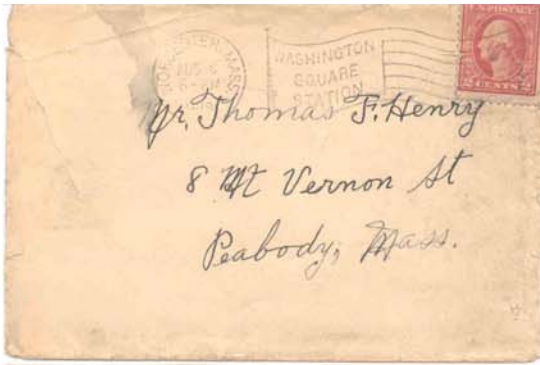 WORCESTER, MASS.
AUG 6
WASHINGTON
SQUARE
STATION
U.S. POSTAGE
2 CENTS 2
Mr. Thomas F. Henry
8 Mt Vernon St
Peabody, Mass.